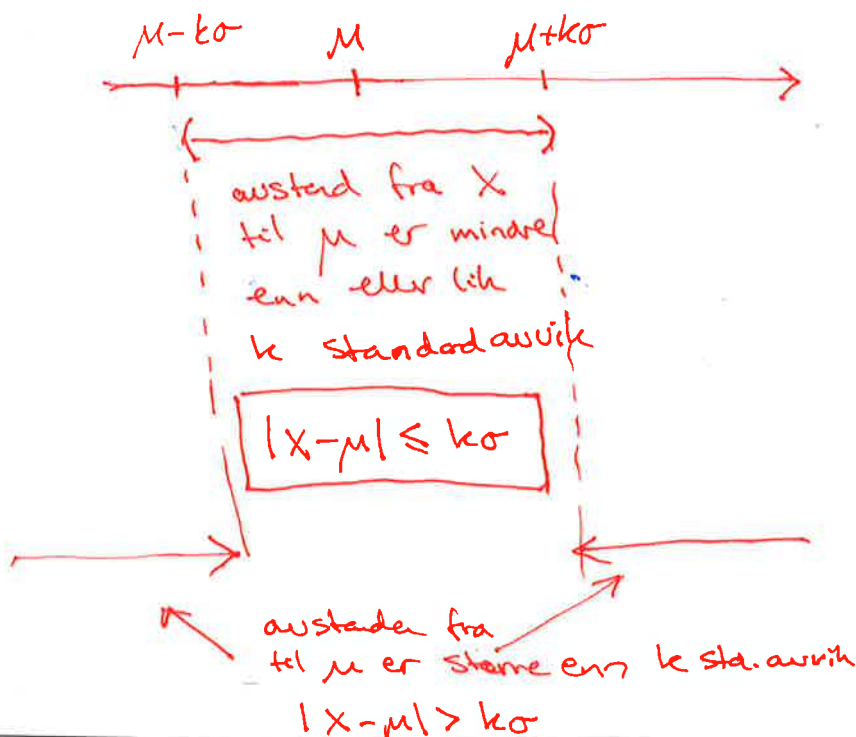 μ-kσ μ μ+kσ
avstand fra X
til μ er mindre
enn eller lik
k standardavvik
|X-μ| ≤ kσ
avstanden fra
til μ er større enn k std.avvik
|X-μ| > kσ